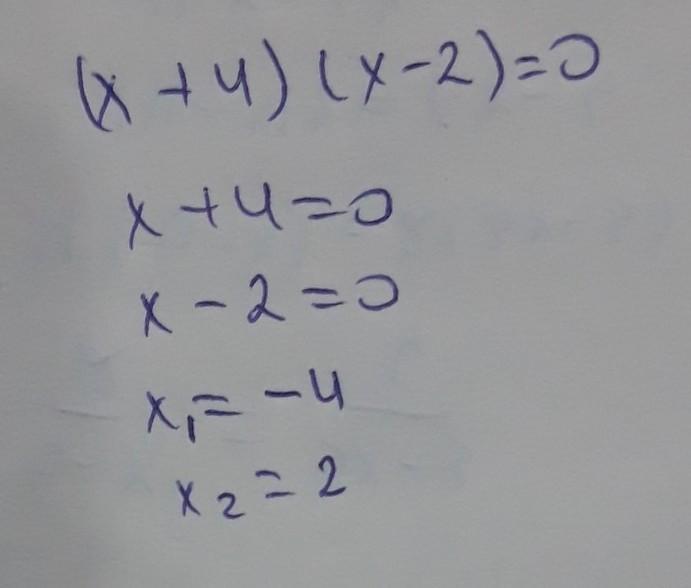 (x + 4) (x - 2) = 0
x + 4 = 0
x - 2 = 0
x₁ = -4
x₂ = 2